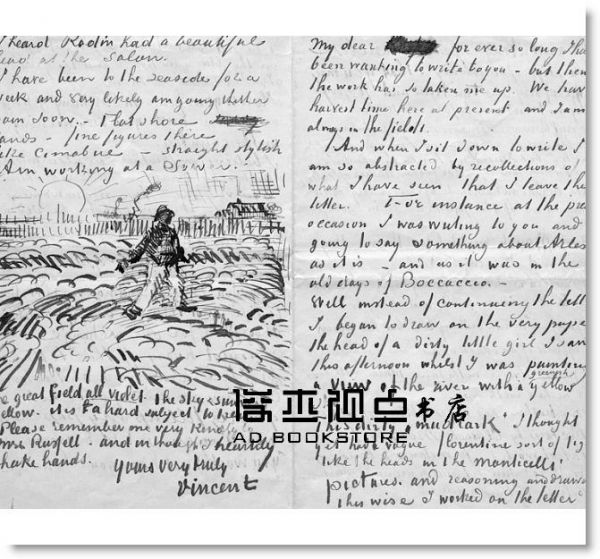 I heard Rodin had a beautiful
head at the Salon.
I have been to the seaside for a
week and very likely am going thither
again soon. - Flat shore
sands - fine figures there
like Cimabue - straight stylish
Am working at a Sower.
the great field all violet the sky & sun
yellow. it is a hard subject to treat.
Please remember me very kindly to
Mrs Russell - and in thought I heartily
shake hands.
Yours very truly
Vincent
My dear for ever so long I have
been wanting to write to you - but then
the work has so taken me up. We have
harvest time here at present and I am
always in the fields.
And when I sit down to write I
am so abstracted by recollections of
what I have seen that I leave the
letter. For instance at the present
occasion I was writing to you and
going to say something about Arles
as it is - and as it was in the
old days of Boccaccio. -
Well instead of continuing the letter
I began to draw on the very paper
the head of a dirty little girl I saw
this afternoon whilst I was painting
a view of the river with a greenish yellow
This dirty "mudlark" I thought
yet had a vague florentine sort of figure
like the heads in the monticelli
pictures. and reasoning and drawing
this wise I worked on the letter
书店
AD BOOKSTORE